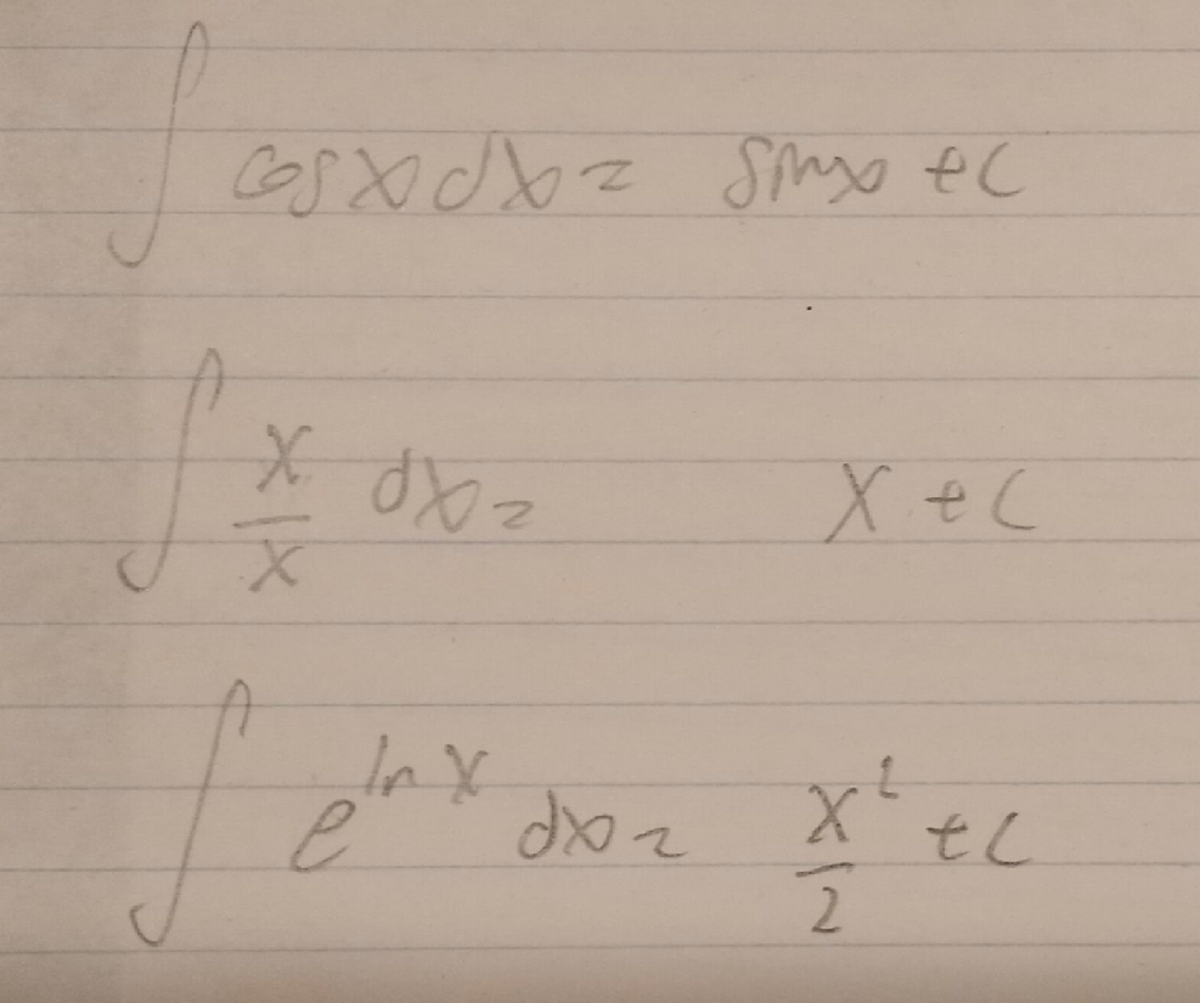 ∫ cos x dx = sin x + C
∫ x/x dx = x + C
∫ e^{ln x} dx = x²/2 + C